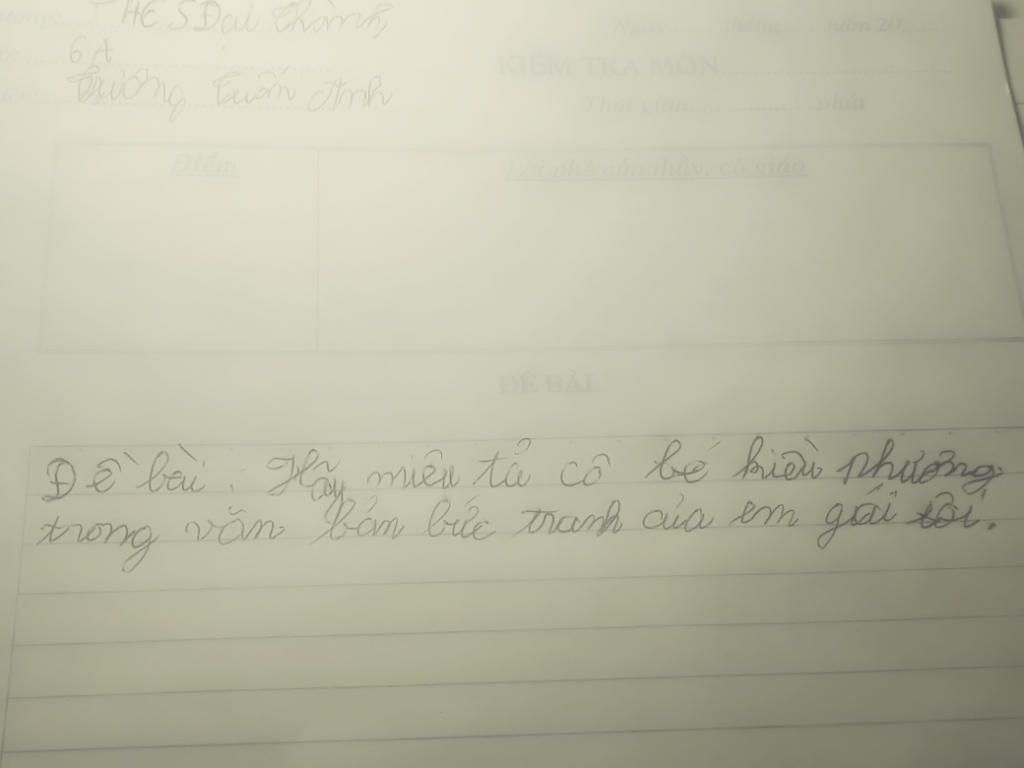 THCS Đại Thành
6A
Trương Tuấn Anh
Ngày ........ tháng ..... năm 20......
KIỂM TRA MÔN
Thời gian ................ phút
Điểm
Lời phê của thầy, cô giáo
ĐỀ BÀI
Đề bài: Hãy miêu tả cô bé kiều phương
trong văn bản bức tranh của em gái tôi.